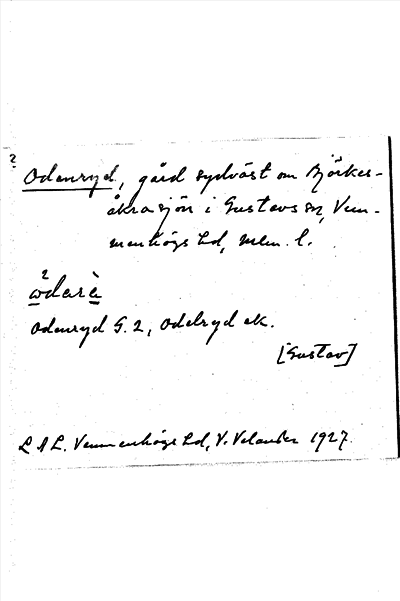 ?
Odenryd, gård sydväst om Björkes-
åkrasjön i Gustavs sn, Vem-
menhögs hd, Mlm. l.
2
ωdarè
Odenryd G. 2, Odelryd ek.
[Gustav]
LAL. Vemmenhögs hd, V. Velander 1927.